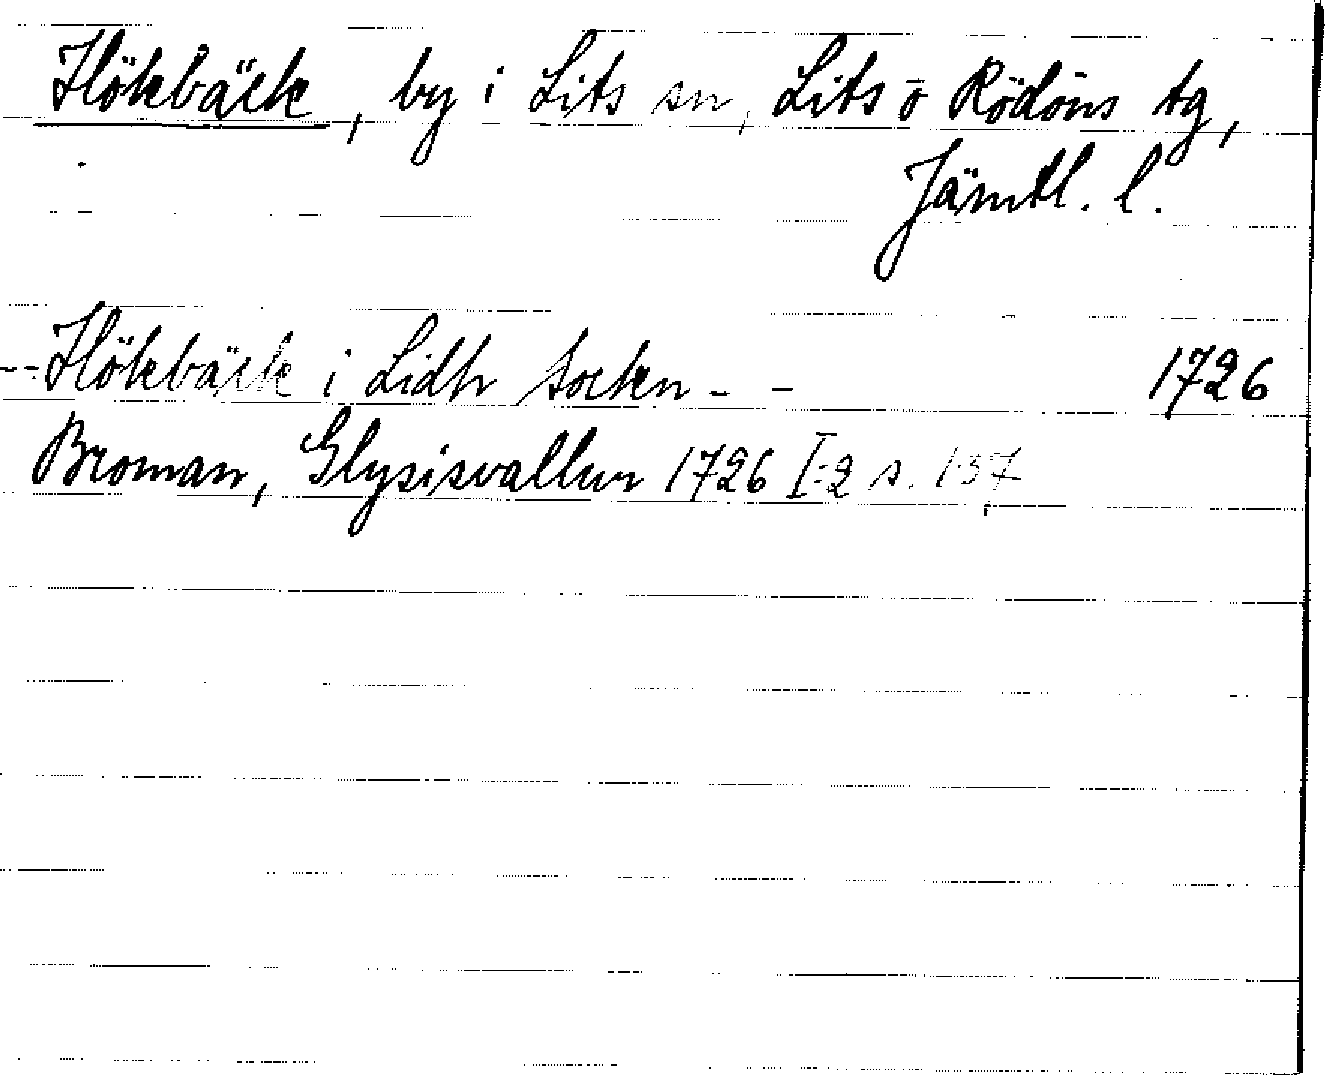 Hökbäck, by i Lits sn, Lits o Rödöns tg,
Jämtl. l.
-- Hökbäck i Lidh Sockn - - 1726
Broman, Glysisvallur 1726 I:2 s. 137